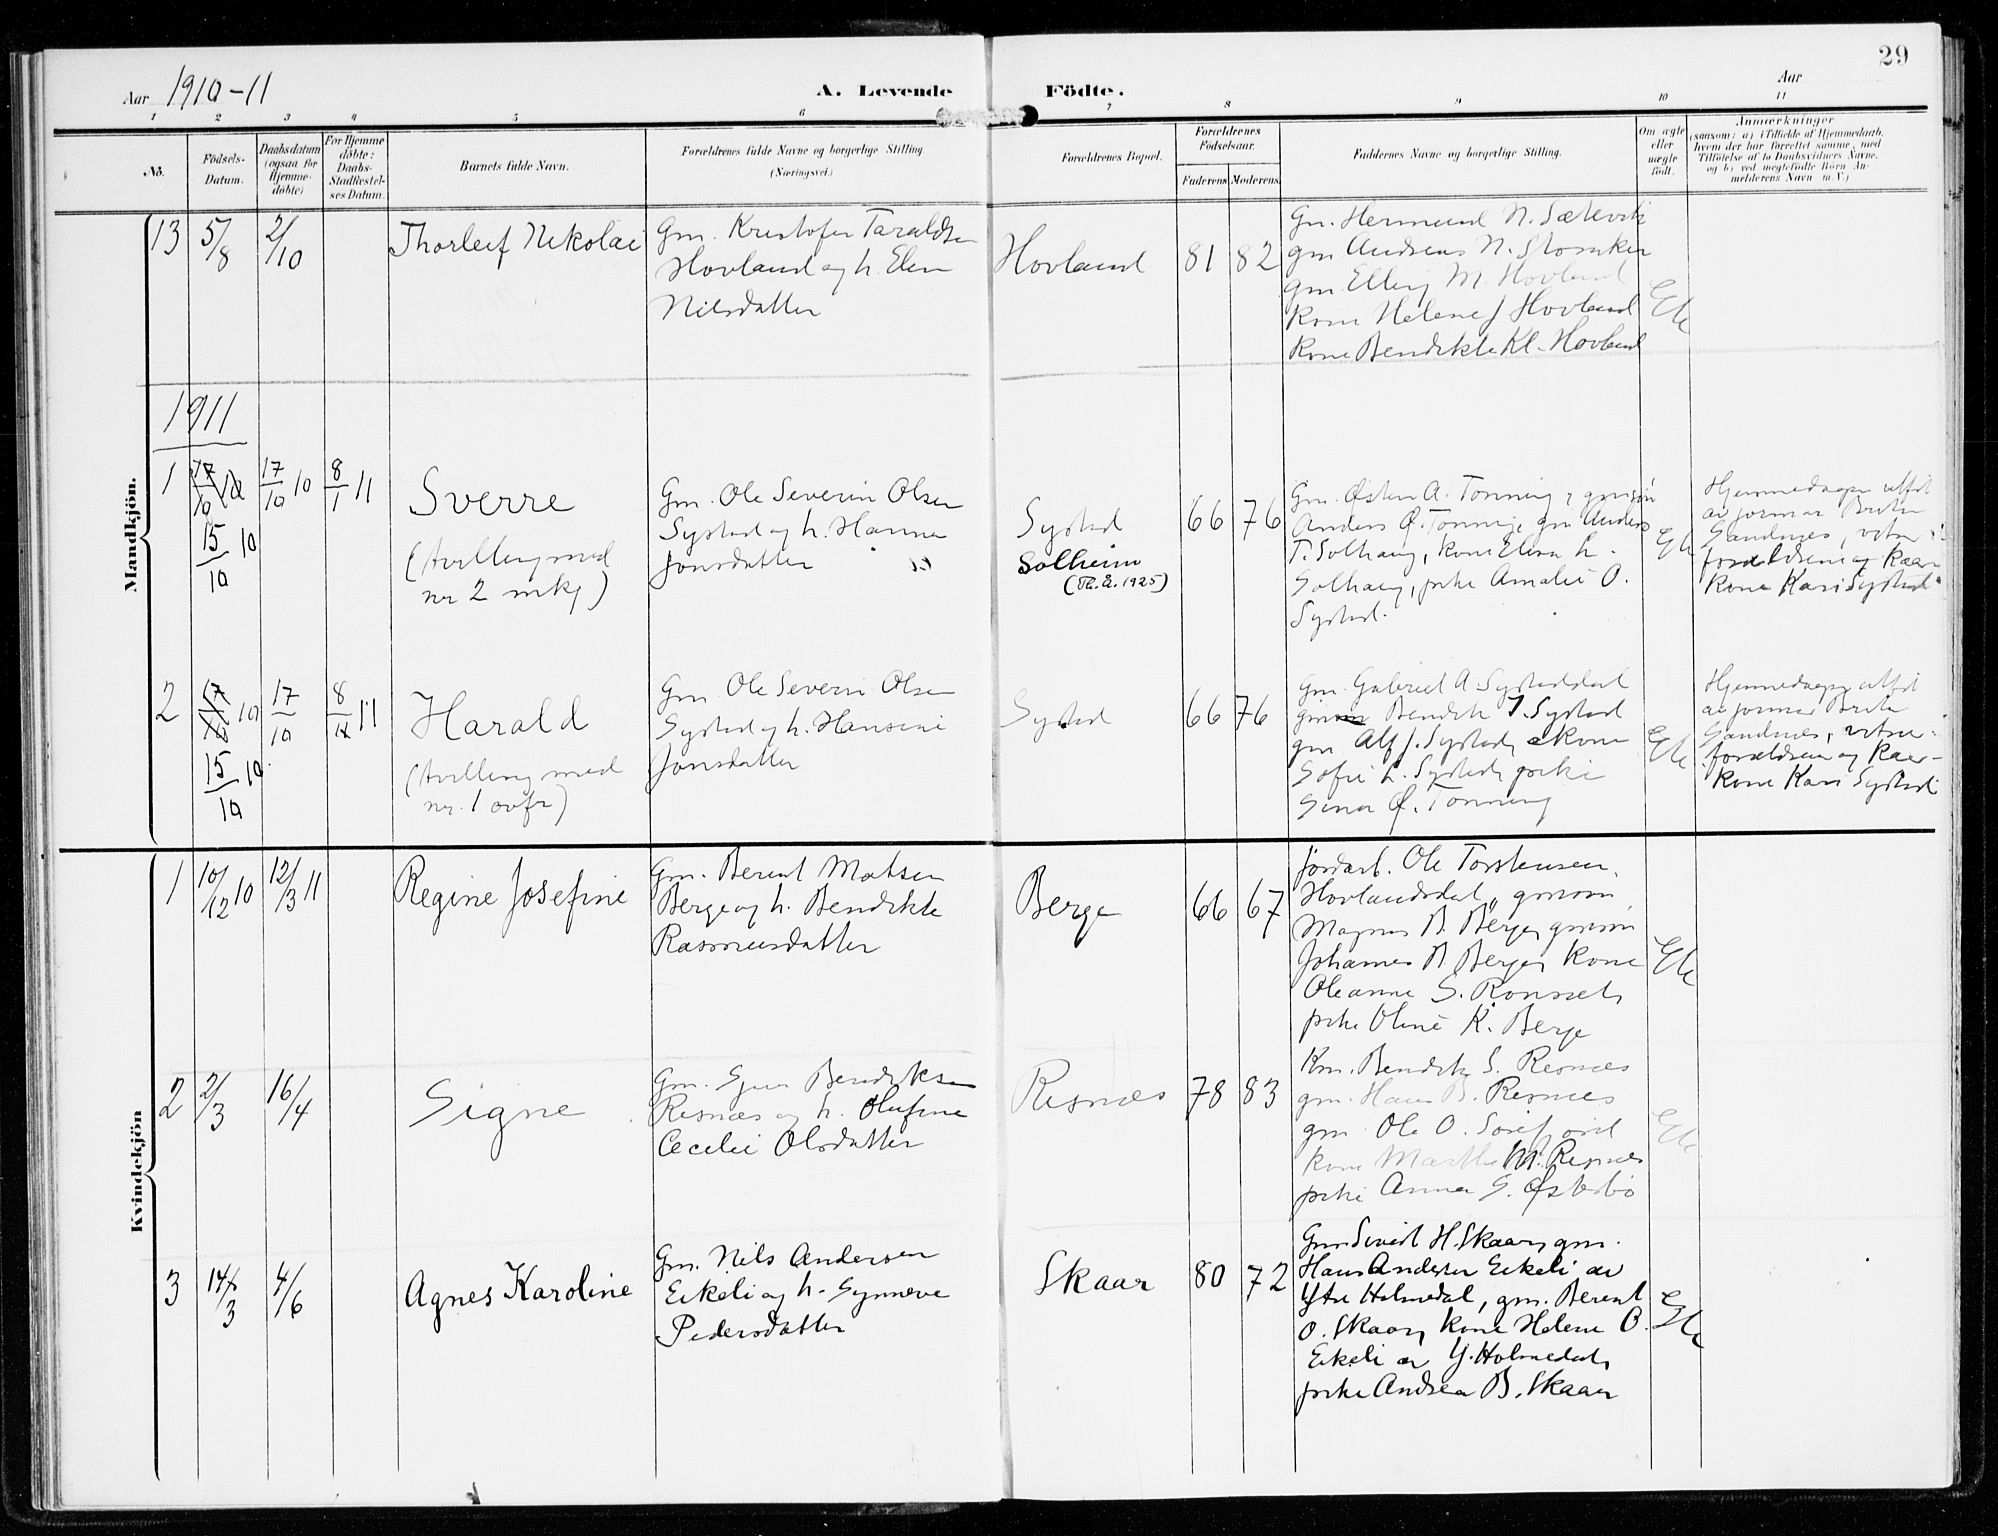 29
Aar 1910-11
A. Levende Födte.
Aar
1 2 3 4 5 6 7 8 9 10 11
No.
Födsels-
Datum.
Daabsdatum
(ogsaa for
Hjemme-
døbte)
For Hjemme
døbte:
Daabs-
Stadfæstel-
ses Datum.
Barnets fulde Navn.
Forældrenes fulde Navne og borgerlige Stilling
(Næringsvei.)
Forældrenes Bopæl.
Forældrenes
Födselsaar.
Faderens Moderens
Faddernes Navne og borgerlige Stilling.
Om ægte
eller
uægte
født.
Anmærkninger
(saasom: a) i Tilfælde af Hjemmedaab,
hvem der har forrettet samme, med
Tilföielse af to Daabsvidners Navne,
og b) ved uegtefödte Börn An-
melderens Navn m. V.)
Mandkjön.
13
5/8
2/10
Thorleif Nikolai
Gm. Kristofer Taraldsen
Hovland og h. Elen
Nilsdatter
Hovland
81 82
Gm. Hermund N. Sætevik
gm Andreas N.
gm. Elling M. Hovland
kone Helene J Hovland
kone Bendikte Kl. Hovland
Egte
1911
1
17/10 10
15/10 10
17/10 10
8/1 11
Sverre
(tvilling med
nr 2 mkj)
Gm. Ole Severin Olsen
Systad og h. Hanna
Jonsdatter
Systad
Solheim
(Th. å. 1925)
66 76
Gm. Østen A. Tonning, gmsøn
Anders Ø. Tonning, gm. Anders
T. Solhaug, kone Elina L.
Solhaug, pike Amalie O.
Systad.
Egte
Hjemmedaape utført
av jormor Brita
Sandnes, vitner:
forældrene og kaar-
kone Kari Systad
2
17/10 10
15/10 10
17/10
8/1 11
Harald
(tvilling med
nr. 1 ovfr)
Gm. Ole Severin Olsen
Systad og h. Hansine
Jonsdatter
Systad
66 76
Gm. Gabriel A. Systaddal
Bendik I. Systad
gm. Alf J. Systad, kone
Sofie L. Systad, pike
Sina Ø. Tonning
Egte
Hjemmedaape utført
av jormor Brita
Sandnes, vitner:
forældrene og kaar-
kone Kari Systad
Kvindekjön
1
10/12 10
12/3 11
Regine Josefine
Gm. Berent Matsen
Berge og h. Bendikte
Rasmusdatter
Berge
66 67
Jordarb. Ole Torstensen
Hovlandsdal, gmsøn
Magnus B. Berge, gmsøn
Johannes B. Berge, kone
Oleanne S. Ronsset,
pike Oline K. Berge
Egte
2
2/3
16/4
Signe
Gm. Bendiksen
Risnes og h. Olufine
Cecilie Olsdatter
Risnes
78 83
Km. Bendik S. Risnes
gm. Hans B. Risnes
gm. Ole O. Sörefjord
kone Marthe M. Risnes
pike Anna S. Østerbö
Egte
3
14/3
4/6
Agnes Karoline
Gm. Nils Andersen
Eikeli og h. Synneve
Pedersdatter
Skaar
80 72
Gm Sivert H. Skaar, gm.
Hans Andersen Eikeli av
Ytre Holmedal, gm. Berent
O. Skaar, kone Helene B.
Eikeli av Y. Holmedal,
pike Andrea B. Skaar
Egte